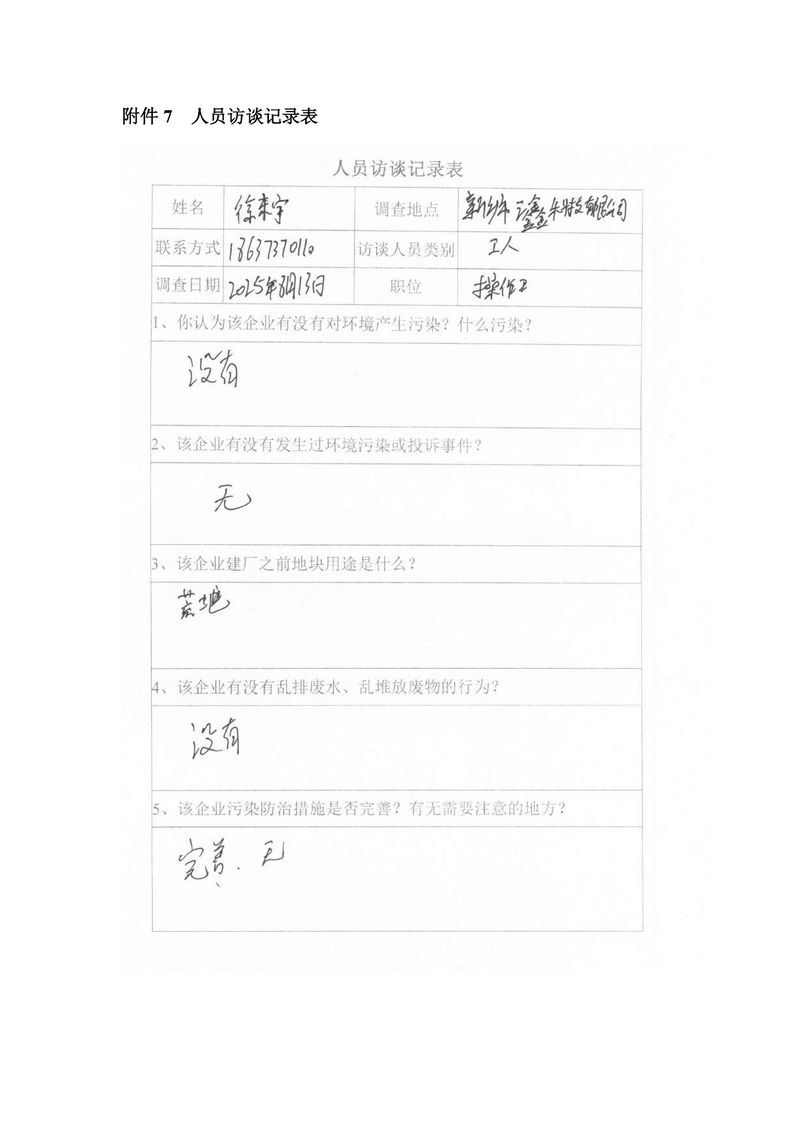 附件 7 人员访谈记录表
人员访谈记录表
姓名 徐来宇 调查地点 新乡市 鑫 有限公司
联系方式 18637370110 访谈人员类别 工人
调查日期 2025年8月13日 职位 操作工
1、你认为该企业有没有对环境产生污染？什么污染？
没有
2、该企业有没有发生过环境污染或投诉事件？
无
3、该企业建厂之前地块用途是什么？
荒地
4、该企业有没有乱排废水、乱堆放废物的行为？
没有
5、该企业污染防治措施是否完善？有无需要注意的地方？
完善. 无